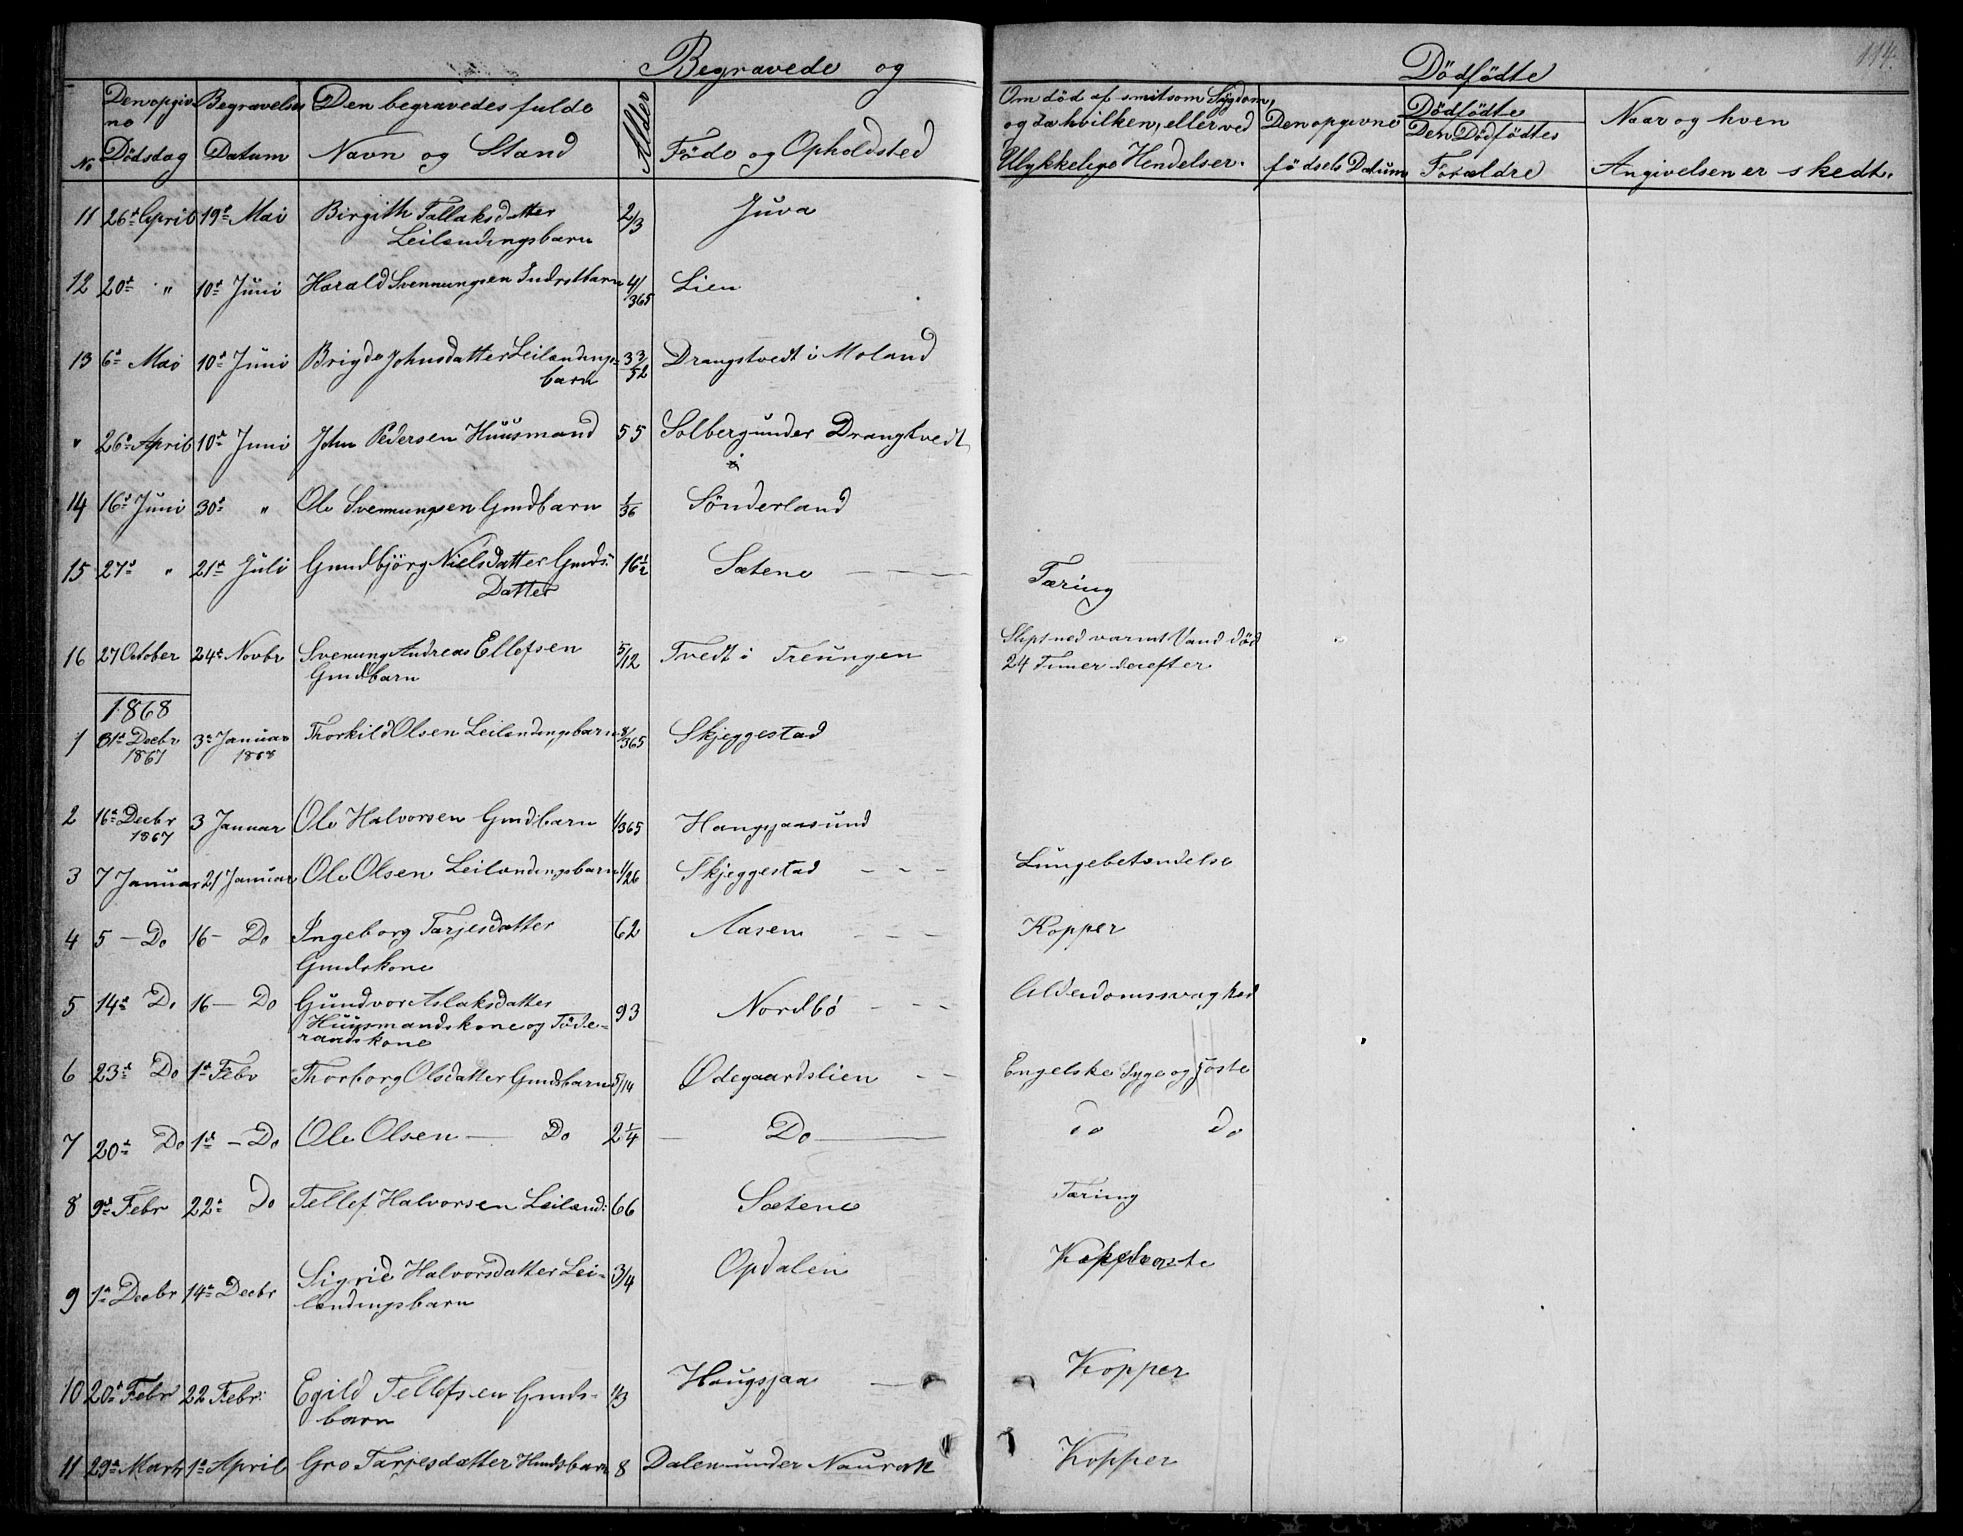 Begravede og Dödfödte
114.
No
Den opgivne Dödsdag
Begravelses Datum
Den begravedes fulde Navn og Stand
Alder
Föde og Opholdsted
Om död af smitsom Sygdom, og da hvilken, eller ved Ulykkelige Hendelser.
Den opgivne födsels Datum
Dödfödte
Den Dödfödtes Forældre
Naar og hven Angivelsen er skedt.
11 26de April 19de Mai Birgith Tallaksdatter 2/3 Juva
Leilændingsbarn
12 20de " 10de Juni Harald Svennungsen Indrstbarn 4/365 Lien
13 6te Mai 10de Juni Brigde Johnsdatter Leilændings= 3 3/52 Drangstvedt i Moland
barn
" 26de April 10de Juni John Pedersen Huusmand 55 Solberg under Drangtvedt
14 16de Juni 30de " Ole Svennungsen Gmdbarn 1/36 Sönderland
15 27de " 21de Juli Gundbjörg Nielsdatter Gmds: 16 1/2 Sætene — — — Tæring
Datter
16 27 October 24de Novbr Svenung Andreas Ellefsen 5/12 Tvedt i Treungen Slept ned varmt Vand död
Gmdbarn 24 Timer derefter
1868
1 31te Decbr 3de Januar Thorkild Olsen Leilendingsbarn 8/365 Skjeggestad
1867 1868
2 16de Decbr 3 Januar Ole Halvorsen Gmdbarn 1/365 Haugsjaasund
1867
3 7 Januar 21 Januar Ole Olsen Leilændingsbarn 1/26 Skjeggestad - - - Lungebetendelse
4 5 — Do 16 — Do Ingeborg Tarjesdatter 62 Aasen — — — Kopper
Gmdskone
5 14de Do 16 — Do Gundvor Aslaksdatter 93 Nordbø - - - Alderdomssvaghed
Huusmandskone og Föde=
raadskone
6 23de Do 1ste Febr Thorborg Olsdatter Gmdsbarn 5/14 Ødegaardslien - - Engelske Syge og Hoste
7 20de Do 1ste — Do Ole Olsen — Do 2 1/4 — Do — do do
8 9de Febr 22de Do Tellef Halvorsen Leilænd: 66 Sætene Tæring
9 1ste Decbr 14de Decbr Sigrid Halvorsdatter Lei= 3/4 Opdalen
lændingsbarn
10 20de Febr 22 Febr: Egild Tellefsen Gmds= 1/3 Haugsjaa — Kopper
barn
11 29de Marts 1ste April Gro Tarjesdatter Hmdsbarn 8 Dalen under Naurak Kopper